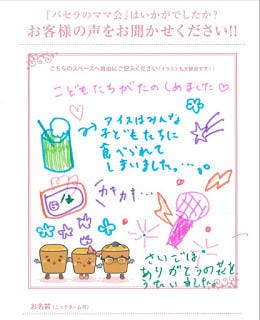 『パセラのママ会』はいかがでしたか？
お客様の声をお聞かせください!!
こちらのスペースへ自由にご記入ください（イラストも大歓迎です！）
こどもたちがたのしめました♡
アイスはみんな
子どもたちに
食べられて
しまいました。…。
カキカキ…
さいごは
ありがとうの花を
うたいました。
お名前（ニックネーム可）